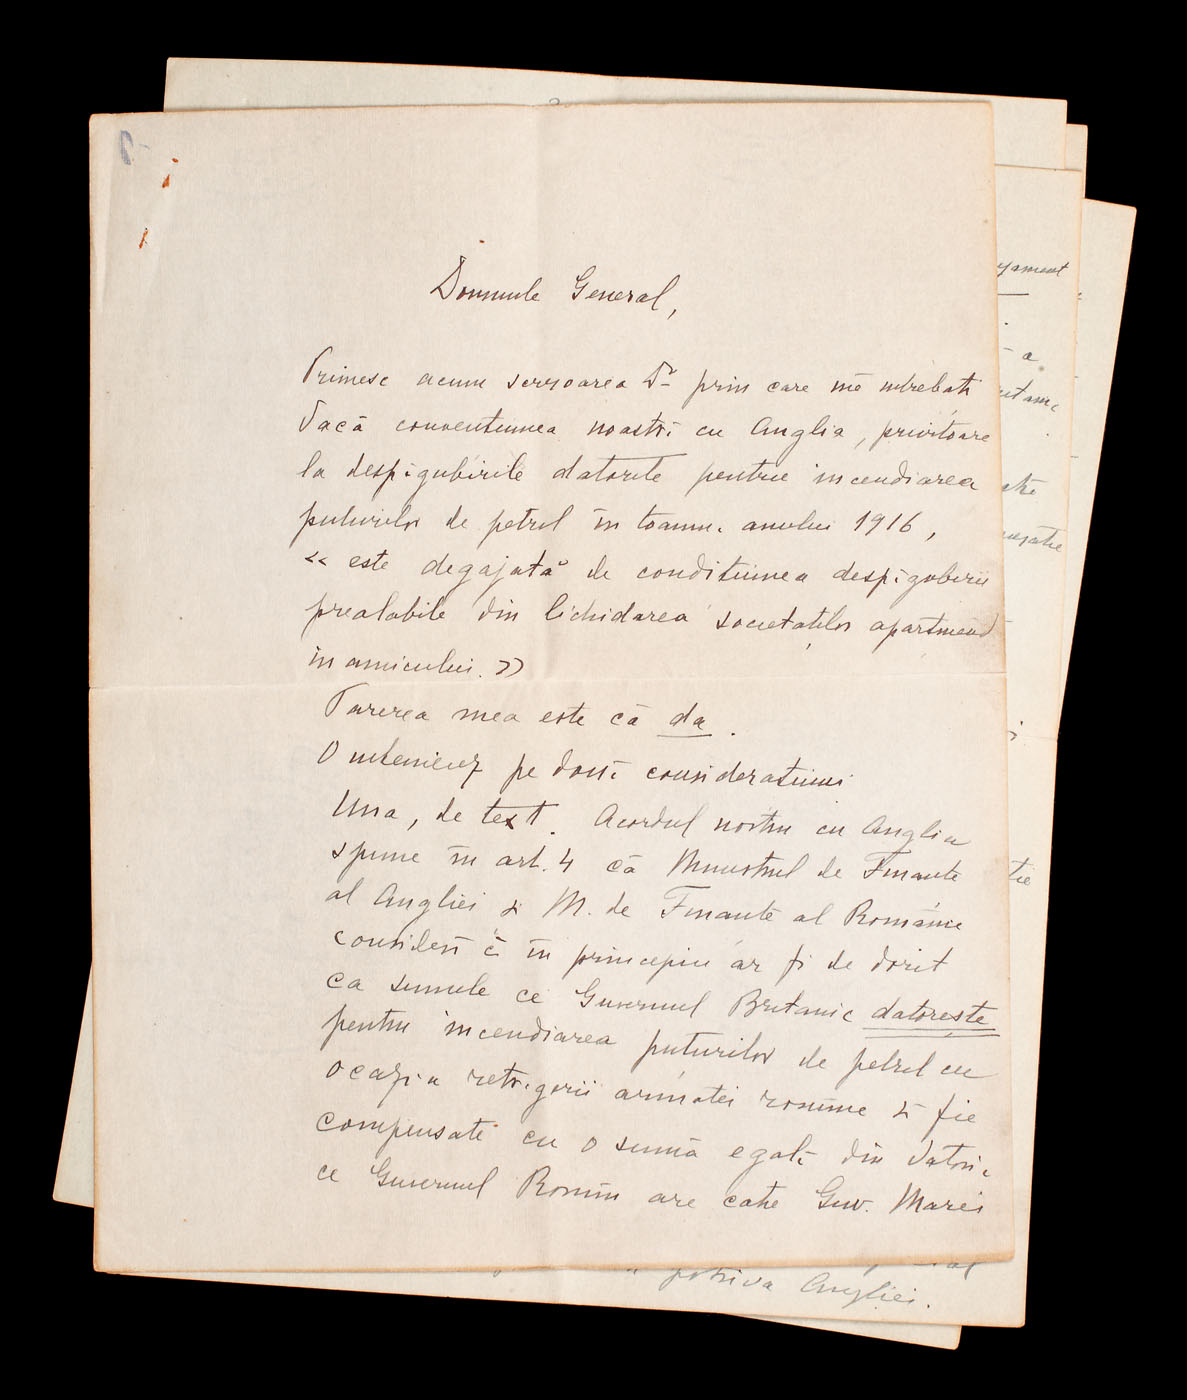 Domnule General,
Primesc acum scrisoarea Dv prin care mĕ intrebati
dacă convenţiunea noastră cu Anglia, privitoare
la despăgubirile datorite pentru incendiarea
puţurilor de petrol în toamna anului 1916,
« este degajată de condiţiunea despăgubirii
prealabile din lichidarea societaţilor aparţinend
inamicului. »
Parerea mea este că da.
O intemeiez pe două consideraţiuni
Una, de text. Acordul nostru cu Anglia
spune în art. 4 că Ministrul de Finante
al Angliei şi M. de Finante al României
consideră că în principiu ar fi de dorit
ca sumele ce Guvernul Britanic datoreşte
pentru incendiarea puţurilor de petrol cu
ocazia retragerii armatei romîne să fie
compensate cu o sumă egală din datoria
ce Guvernul Romîn are catre Guv. Marei
potriva Angliei.